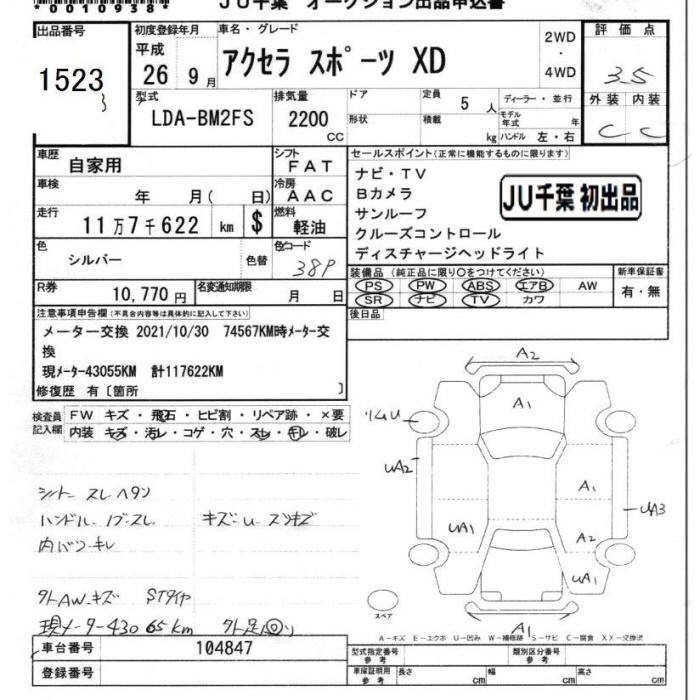 *0010938*
JU千葉 オークション出品申込書
出品番号
1523
初度登録年月
平成
26 9月
車名・グレード
アクセラ スポーツ XD
2WD
・
4WD
評価点
3.5
外装 内装
C C
型式
LDA-BM2FS
排気量
2200
CC
ドア
形状
定員
5 人
積載
kg
ディーラー・並行
モデル年式 年
ハンドル 左・右
車歴
自家用
シフト
FAT
車検
年 月( 日)
冷房
AAC
走行
11万7千622 km $
燃料
軽油
色
シルバー
色替
色コード
38P
R券
10,770円
名変通知期限
月 日
セールスポイント(正常に機能するものに限ります)
ナビ・TV
Bカメラ
サンルーフ
クルーズコントロール
ディスチャージヘッドライト
JU千葉 初出品
装備品(純正品に限り○をつけてください)
PS PW ABS エアB AW
SR ナビ TV カワ
新車保証書
有・無
後日品
注意事項申告欄(不具合内容等は具体的に記入して下さい)
メーター交換 2021/10/30 74567KM時メーター交
換
現メーター43055KM 計117622KM
修復歴 有〔箇所 〕
検査員
記入欄
FW キズ・飛石・ヒビ割・リペア跡・×要
内装 キズ・汚レ・コゲ・穴・スレ・キレ・破レ
シート スレ ヘタリ
ハンドル ノブ スレ キズ U スリキズ
内バリ キレ
外AW キズ STタイヤ
現メーター43065km
A2
A1
リムU
UA2
A1
UA3
UA1
A2
UA1
スペア
A-キズ E-エクボ U-凹み W-補修跡 S-サビ C-腐食 XX-交換済
車台番号
104847
登録番号
型式指定番号
参考
類別区分番号
参考
車庫証明用
参考
長さ cm 幅 cm 高さ cm